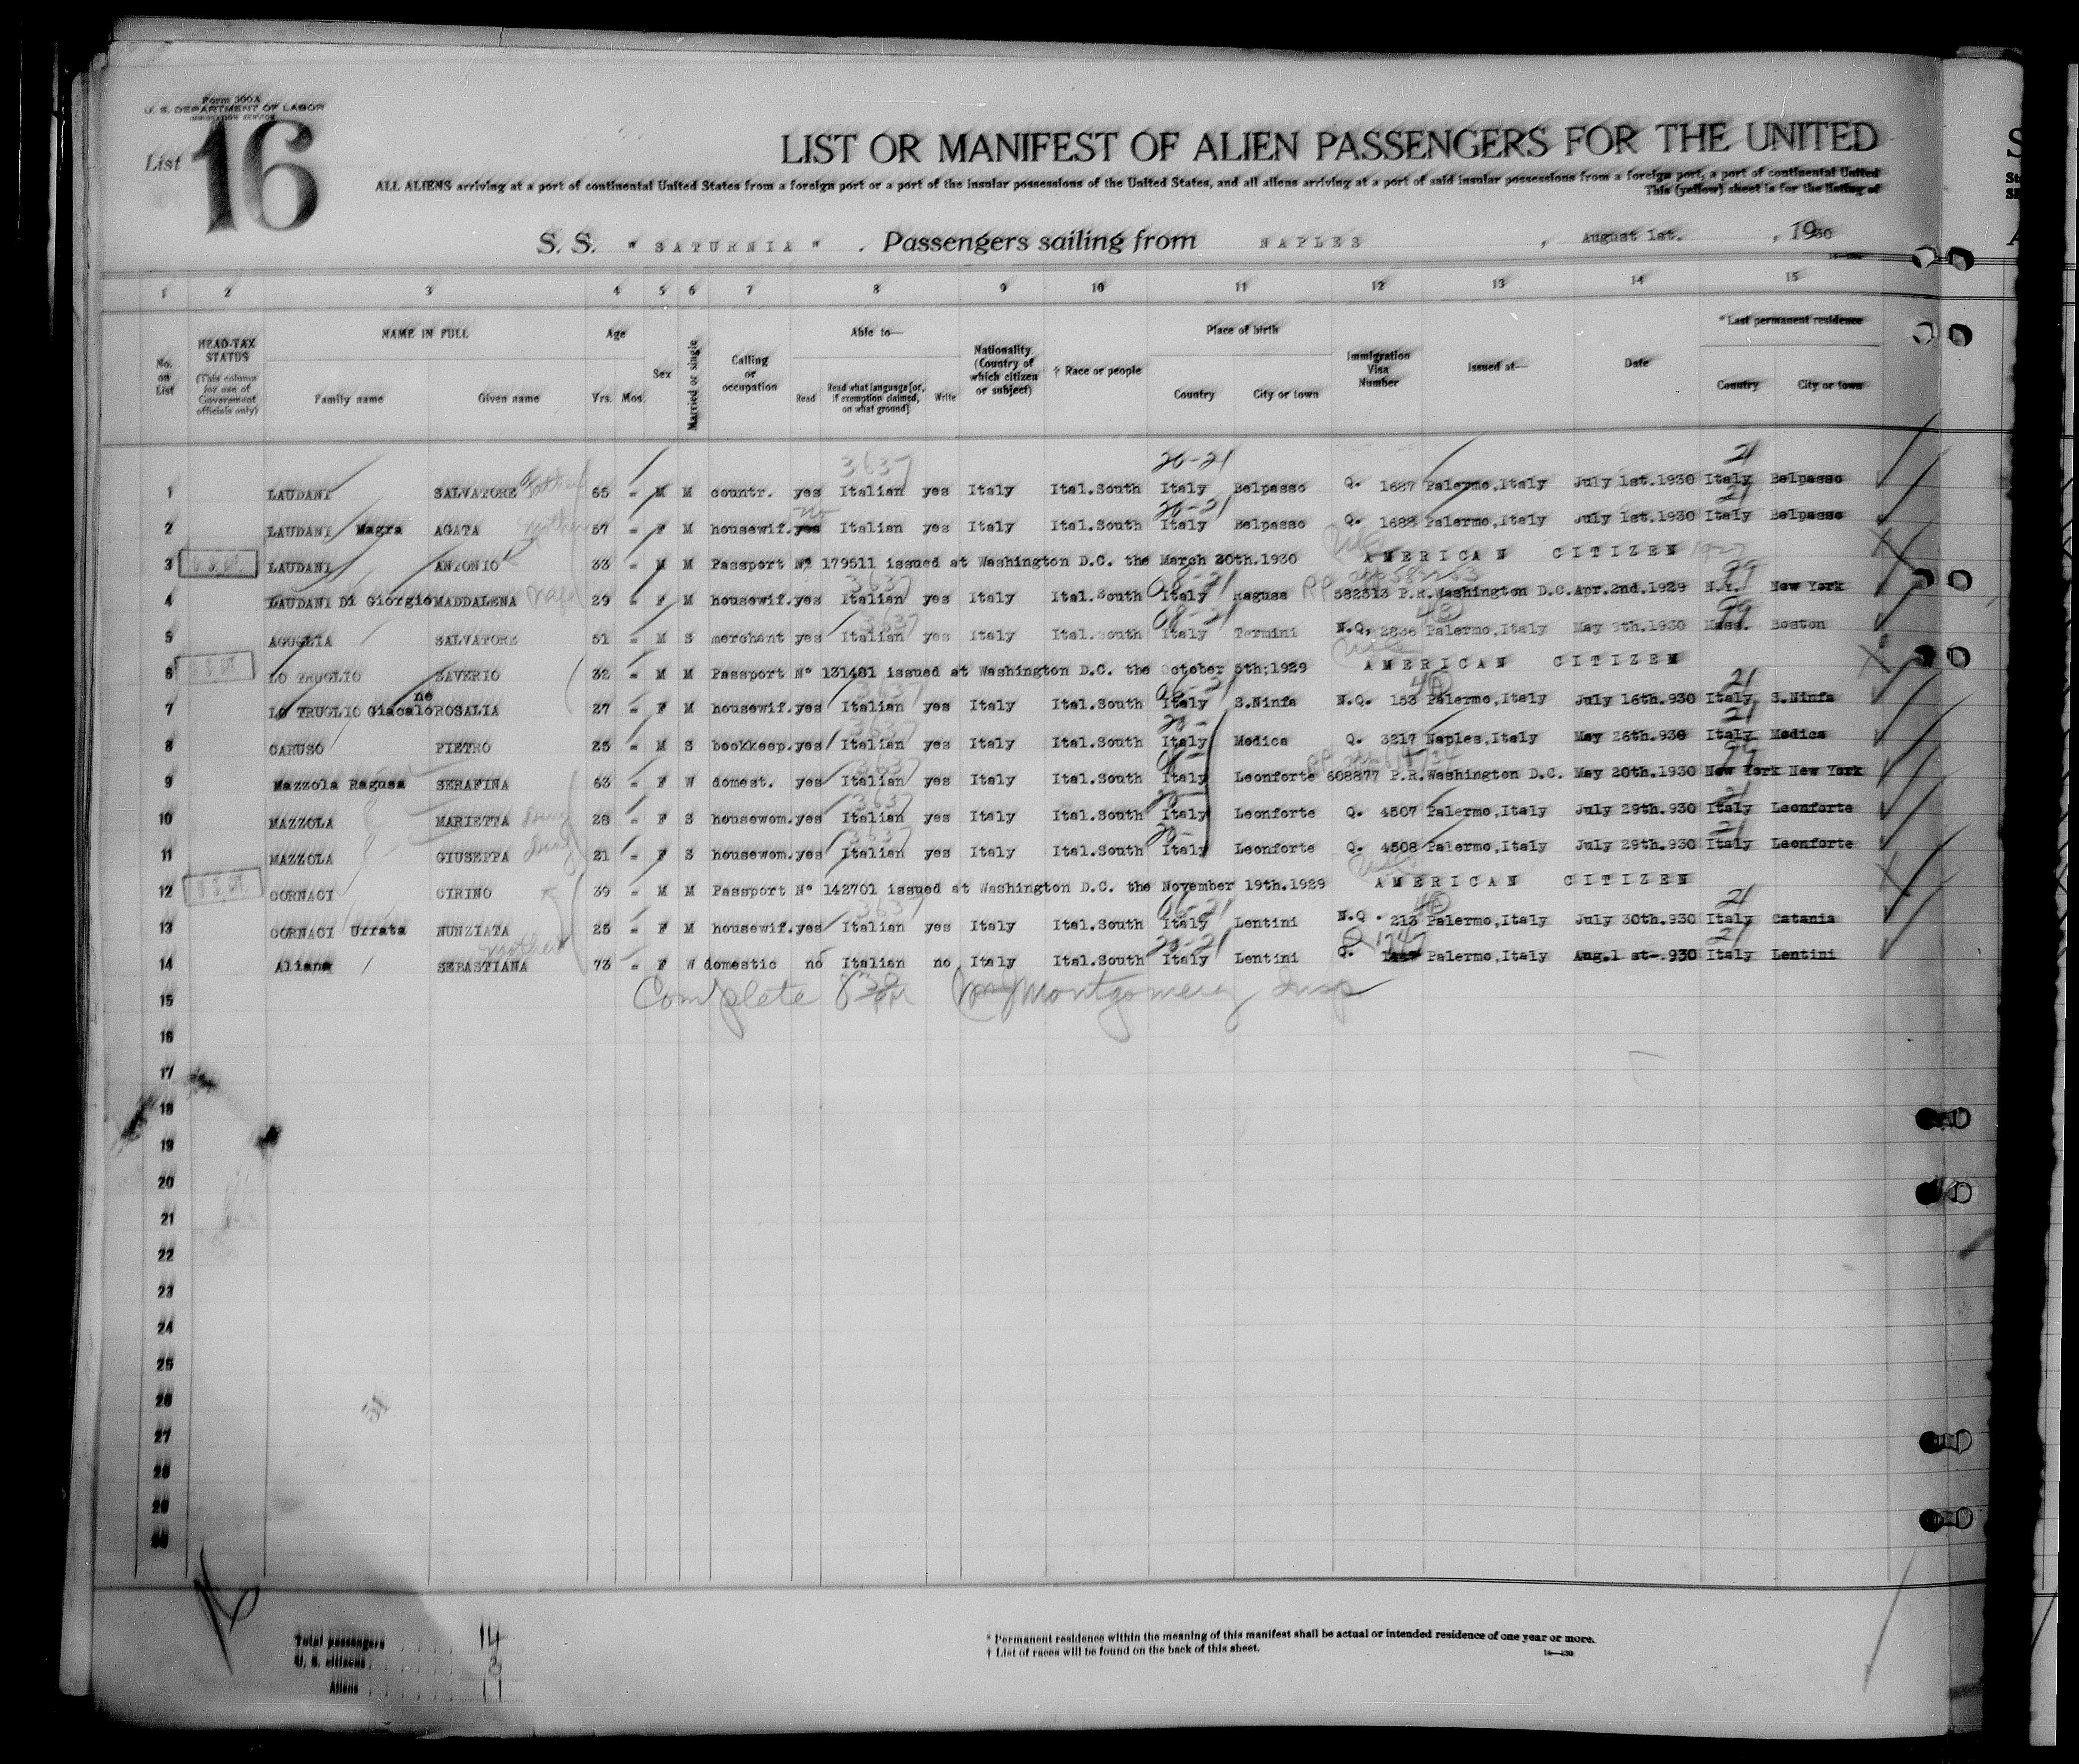 Form 500A
U. S. DEPARTMENT OF LABOR
IMMIGRATION SERVICE
List 16
LIST OR MANIFEST OF ALIEN PASSENGERS FOR THE UNITED
ALL ALIENS arriving at a port of continental United States from a foreign port or a port of the insular possessions of the United States, and all aliens arriving at a port of said insular possessions from a foreign port, a port of continental United
This (yellow) sheet is for the listing of
S. S. "SATURNIA". Passengers sailing from NAPLES, August 1st., 1930
1 2 3 4 5 6 7 8 9 10 11 12 13 14 15
No. on List
HEAD-TAX STATUS (This column for use of Government officials only)
NAME IN FULL Family name Given name
Age Yrs. Mos.
Sex
Married or single
Calling or occupation
Able to— Read Read what language [or, if exemption claimed, on what ground] Write
Nationality (Country of which citizen or subject)
† Race or people
Place of birth Country City or town
Immigration Visa Number
Issued at—
Date
* Last permanent residence Country City or town
3637 26-21 21
1 LAUDANI SALVATORE father 65 - M M countr. yes Italian yes Italy Ital.South Italy Belpasso Q. 1687 Palermo,Italy July 1st.1930 Italy Belpasso
no 26-21 21
2 LAUDANI Magra AGATA mother 57 - F M housewif. yes Italian yes Italy Ital.South Italy Belpasso Q. 1688 Palermo,Italy July 1st.1930 Italy Belpasso
3 LAUDANI ANTONIO 33 - M M Passport Nº 179511 issued at Washington D.C. the March 20th.1930 AMERICAN CITIZEN
3637 08-21 99
4 LAUDANI Di Giorgio MADDALENA 29 - F M housewif. yes Italian yes Italy Ital.South Italy Ragusa 582513 P.R. Washington D.C. Apr.2nd.1929 N.Y. New York
3637 08-21 99
5 AGUGLIA SALVATORE 51 - M S merchant yes Italian yes Italy Ital.South Italy Termini N.Q. 2836 Palermo,Italy May 9th.1930 Mass. Boston
6 LO TRUGLIO SAVERIO 32 - M M Passport Nº 131481 issued at Washington D.C. the October 5th;1929 AMERICAN CITIZEN
3637 21
7 LO TRUGLIO Giacalone ROSALIA 27 - F M housewif. yes Italian yes Italy Ital.South Italy S.Ninfa N.Q. 153 Palermo,Italy July 16th.930 Italy S.Ninfa
3637 21
8 CARUSO PIETRO 25 - M S bookkeep. yes Italian yes Italy Ital.South Italy Modica Q. 3217 Naples,Italy May 26th.930 Italy Modica
3637 99
9 Mazzola Ragusa SERAFINA 63 - F W domest. yes Italian yes Italy Ital.South Italy Leonforte 608877 P.R. Washington D.C. May 20th.1930 New York New York
3637 21
10 MAZZOLA MARIETTA 28 - F S housewom. yes Italian yes Italy Ital.South Italy Leonforte Q. 4507 Palermo,Italy July 29th.930 Italy Leonforte
3637 21
11 MAZZOLA GIUSEPPA 21 - F S housewom. yes Italian yes Italy Ital.South Italy Leonforte Q. 4508 Palermo,Italy July 29th.930 Italy Leonforte
12 CORNACI CIRINO 39 - M M Passport Nº 142701 issued at Washington D.C. the November 19th.1929 AMERICAN CITIZEN
3637 21
13 CORNACI Urrata NUNZIATA 25 - F M housewif. yes Italian yes Italy Ital.South Italy Lentini N.Q. 213 Palermo,Italy July 30th.930 Italy Catania
mother 26-21 Q 1747 21
14 Aliana SEBASTIANA 73 - F W domestic no Italian no Italy Ital.South Italy Lentini Q. Palermo,Italy Aug.1 st-.930 Italy Lentini
15 Complete Montgomery Insp
16
17
18
19
20
21
22
23
24
25
26
27
28
29
30
Total passengers 14
U. S. citizens 3
Aliens 11
* Permanent residence within the meaning of this manifest shall be actual or intended residence of one year or more.
† List of races will be found on the back of this sheet.